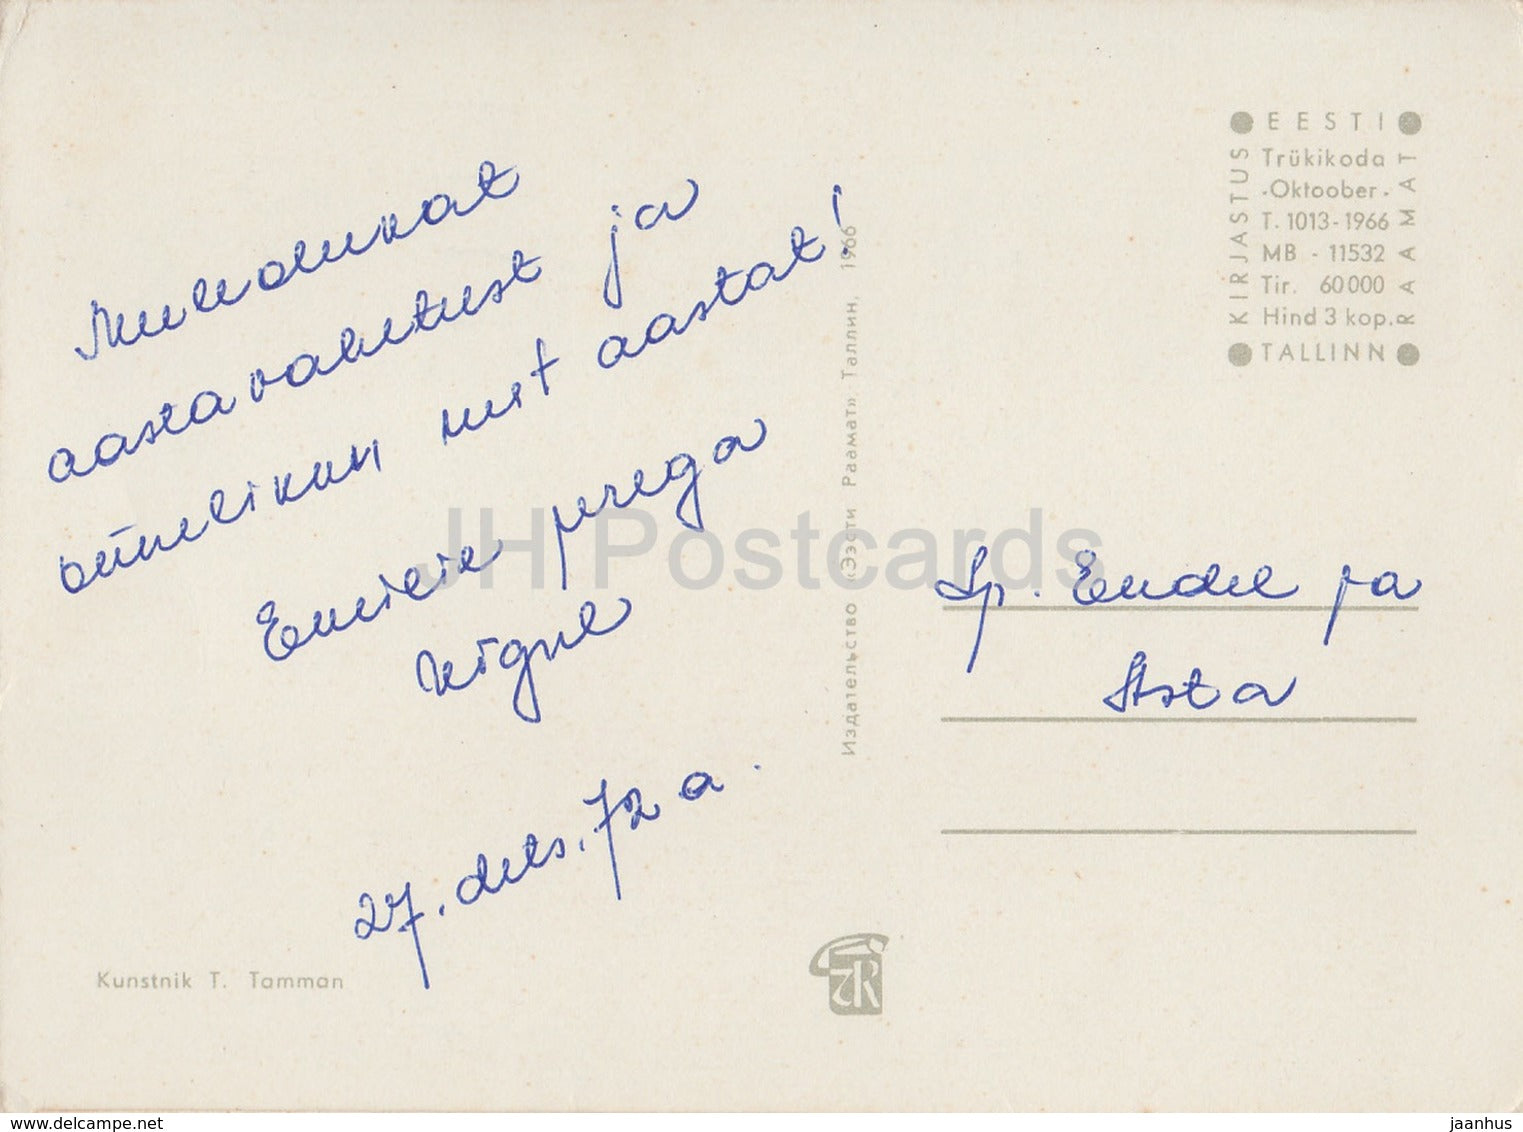 Meeldivat
aastavahetust ja
õnnelikku uut aastat!
perega
27. dets. 72 a.
Kunstnik T. Tamman
Издательство «Ээсти Раамат» Таллин, 1966
EESTI
Trükikoda
-Oktoober-
T. 1013-1966
MB - 11532
Tir. 60 000
Hind 3 kop.
TALLINN
KIRJASTUS
RAAMAT
Sp. Endel ja
Asta
JH Postcards
www.delcampe.net
jaanhus